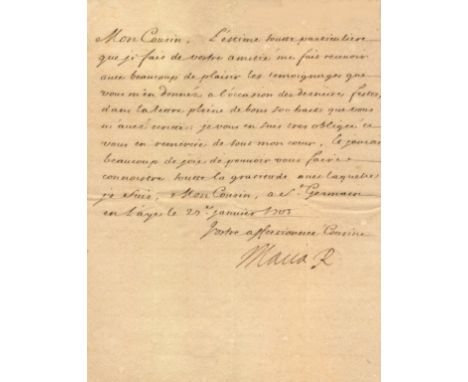 Mon Cousin, L'estime toutte particuliere
que je fais de vostre amitié me fait recevoir
avec beaucoup de plaisir les temoignages que
vous m'en donnez a l'occasion des dernieres festes,
dans la lettre pleine de bons souhaits que vous
m'avez je vous en suis tres obligée et
vous en remercie de tout mon cœur,
beaucoup de joie de pouvoir vous faire
connoistre toutte la gratitude avec laquelle
je suis, Mon Cousin, a St Germain
en Laye le janvier
Vostre affectionnée Cousine
Maria R